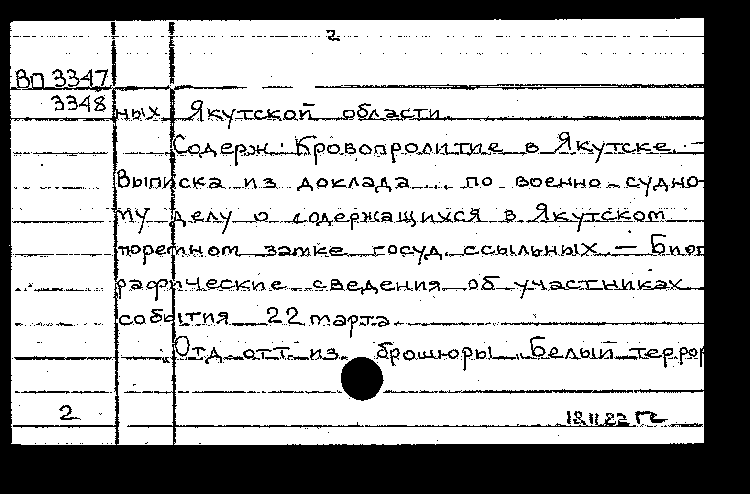 2
ВП 3347
3348 ных Якутской области.
Содерж.: Кровопролитие в Якутске. —
Выписка из доклада ... по военно-судно-
му делу о содержащихся в Якутском
тюремном замке госуд. ссыльных — Биог
рафические сведения об участниках
события 22 марта.
Отд. отт. из брошюры „Белый террор
2